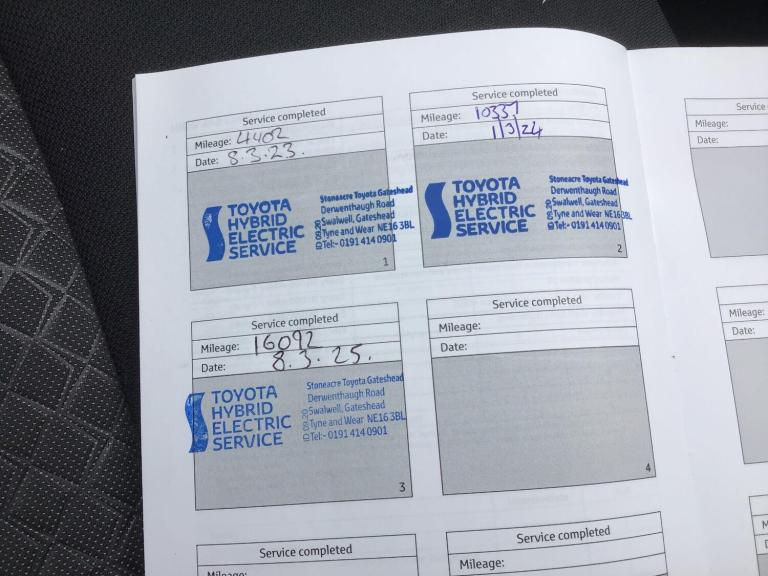 Service completed
Mileage: 4402
Date: 8.3.23.
TOYOTA
HYBRID
ELECTRIC
SERVICE
Stoneacre Toyota Gateshead
Derwenthaugh Road
Swalwell, Gateshead
Tyne and Wear NE16 3BL
Tel:- 0191 414 0901
ID 09.20
1
Service completed
Mileage: 10337
Date: 1/3/24
TOYOTA
HYBRID
ELECTRIC
SERVICE
Stoneacre Toyota Gateshead
Derwenthaugh Road
Swalwell, Gateshead
Tyne and Wear NE16 3BL
Tel:- 0191 414 0901
2
Service
Mileage:
Date:
Service completed
Mileage: 16092
Date: 8.3.25.
TOYOTA
HYBRID
ELECTRIC
SERVICE
Stoneacre Toyota Gateshead
Derwenthaugh Road
Swalwell, Gateshead
Tyne and Wear NE16 3BL
Tel:- 0191 414 0901
ID 09.20
3
Service completed
Mileage:
Date:
4
Mileage:
Date:
Service completed
Mileage:
Service completed
Mileage: